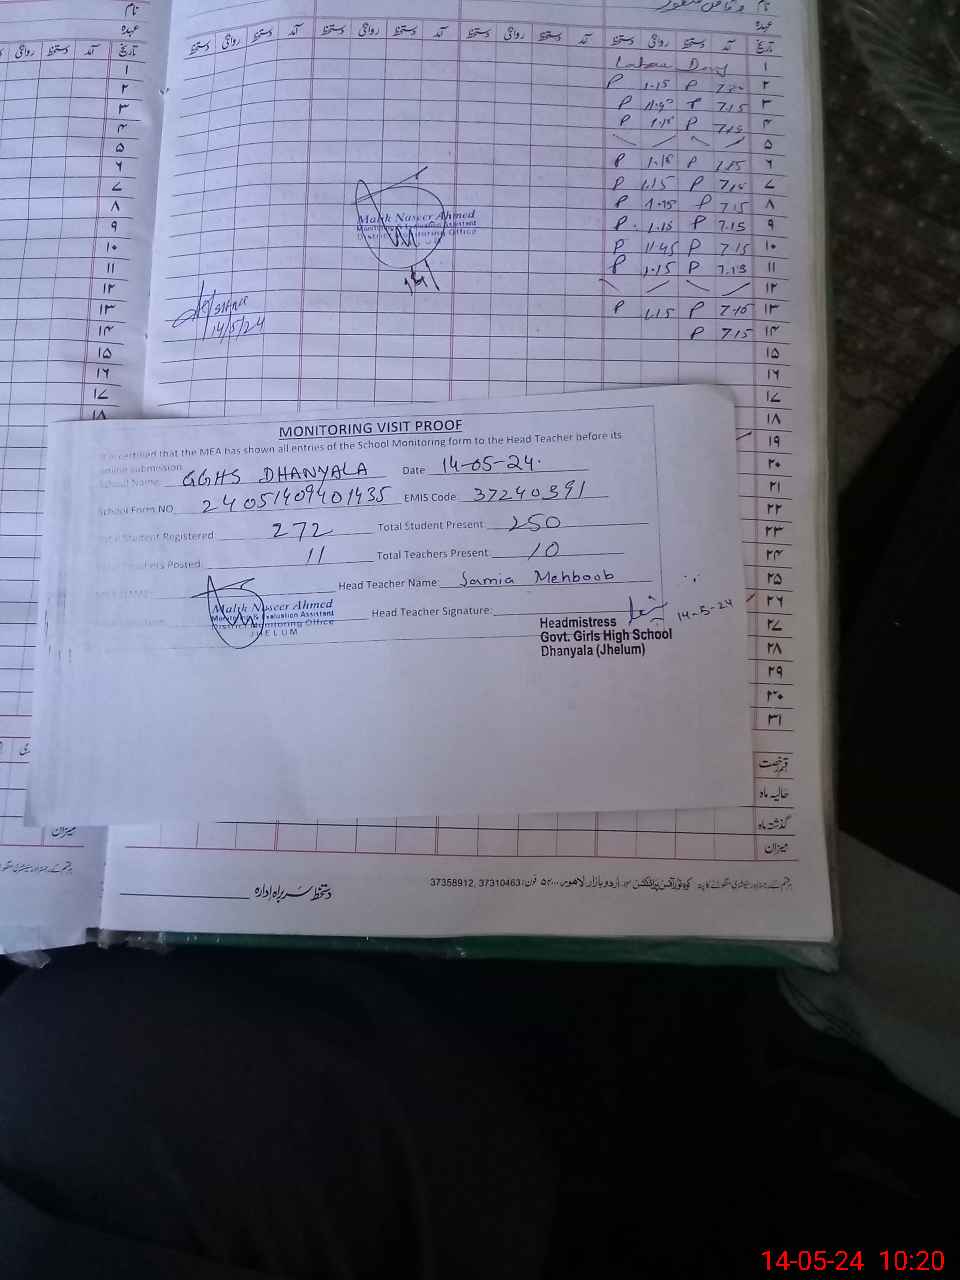 نام
عہدہ
تاریخ آمد دستخط روانگی دستخط آمد دستخط روانگی دستخط آمد دستخط روانگی دستخط آمد دستخط روانگی دستخط
۱ Labour Day
۲ 7.20 P 1.15 P
۳ 7.15 P 11.45 P
۴ 7.15 P 1.15 P
۵
۶ 7.15 P 1.15 P
۷ 7.15 P 1.15 P
۸ 7.15 P 1.15 P
۹ 7.15 P 1.15 P
۱۰ 7.15 P 11.45 P
۱۱ 7.15 P 1.15 P
۱۲
۱۳ 7.15 P 1.15 P
۱۴ 7.15 P
۱۵
۱۶
۱۷
۱۸
۱۹
۲۰
۲۱
۲۲
۲۳
۲۴
۲۵
۲۶
۲۷
۲۸
۲۹
۳۰
۳۱
Malik Naseer Ahmed
Monitoring & Evaluation Assistant
District Monitoring Office
14/5/24
MONITORING VISIT PROOF
It is certified that the MEA has shown all entries of the School Monitoring form to the Head Teacher before its
online submission.
School Name: GGHS DHANYALA Date 14-05-24.
School Form NO 24051409401435 EMIS Code: 37240391
Total Student Registered: 272 Total Student Present: 250
Total Teachers Posted: 11 Total Teachers Present: 10
Head Teacher Name: Samia Mehboob
Malik Naseer Ahmed
Monitoring & Evaluation Assistant
District Monitoring Office
JHELUM
Head Teacher Signature:
14-5-24
Headmistress
Govt. Girls High School
Dhanyala (Jhelum)
قسم رخصت
حالیہ ماہ
گذشتہ ماہ
میزان
اردو بازار لاہور فون: 37358912, 37310463
دستخط سربراہ ادارہ
14-05-24 10:20